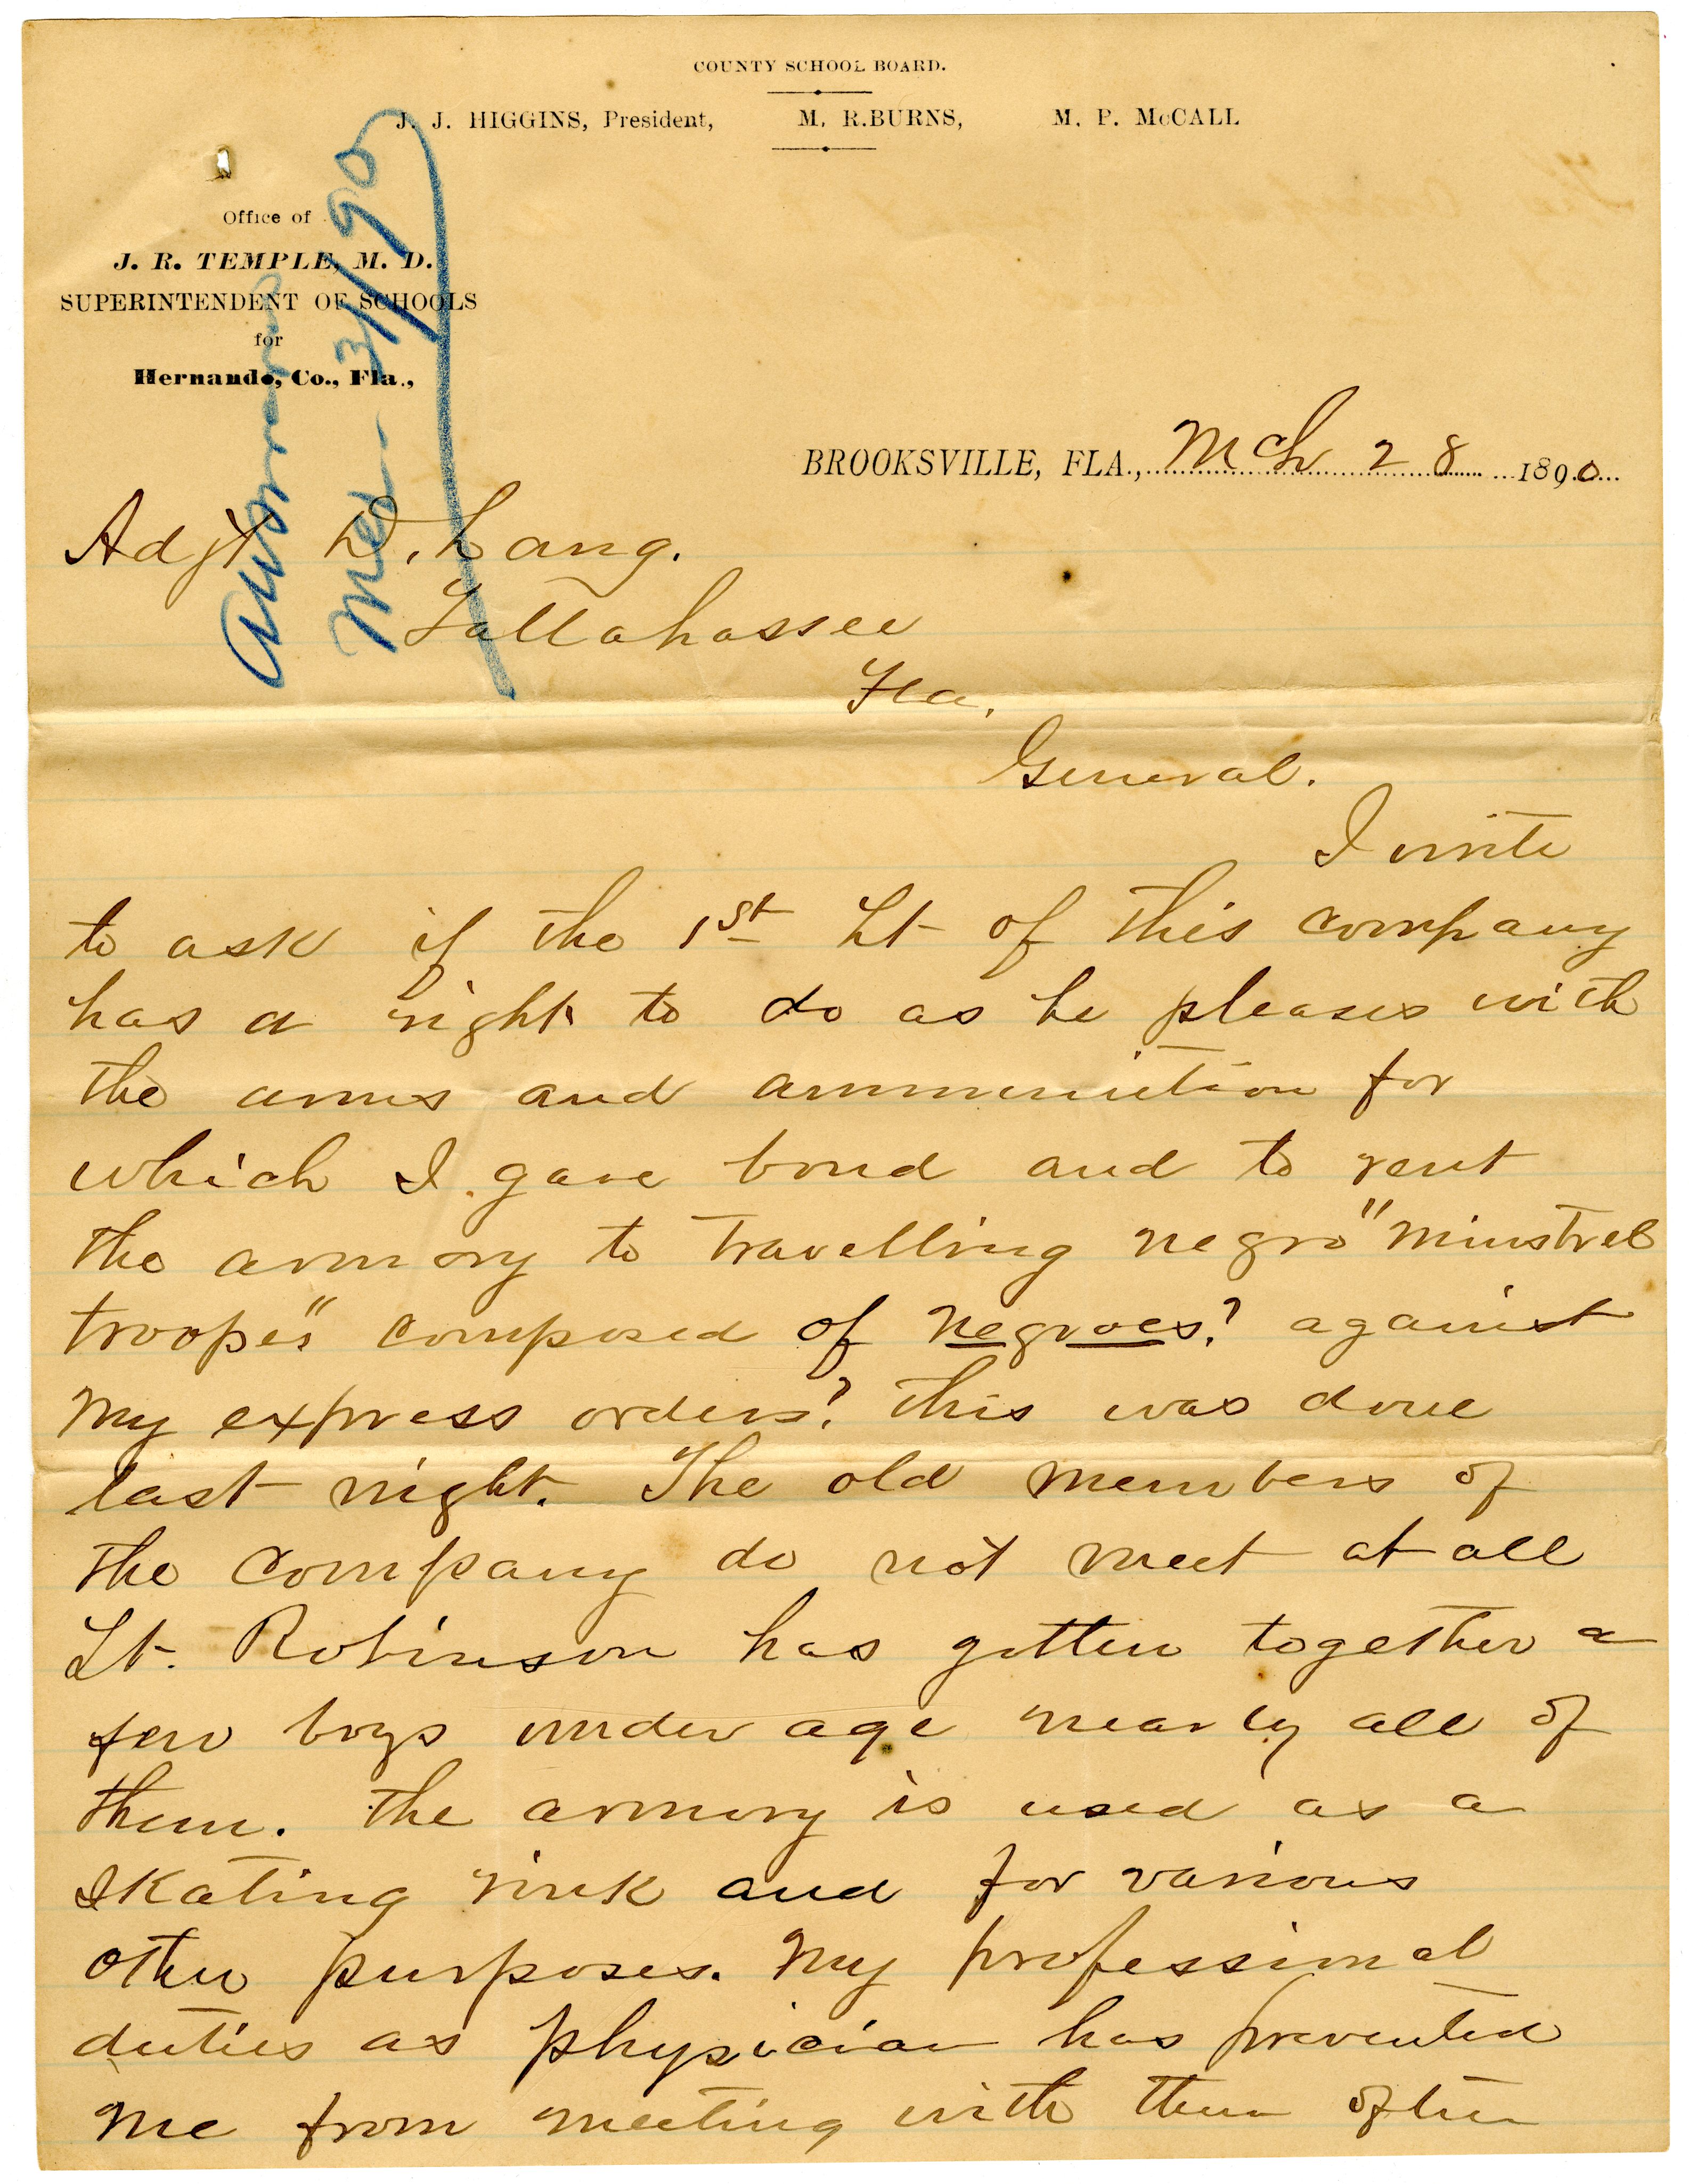 COUNTY SCHOOL BOARD.
J. J. HIGGINS, President, M. R. BURNS, M. P. McCALL
Office of
J. R. TEMPLE, M. D.
SUPERINTENDENT OF SCHOOLS
for
Hernando, Co., Fla.,
Answered
Mch 31/90
BROOKSVILLE, FLA., Mch 28 1890
Adjt D. Lang.
Tallahassee
Fla.
General.
I write
to ask if the 1st Lt of this company
has a right to do as he pleases with
the arms and ammunition for
which I gave bond and to rent
the armory to travelling negro "minstrel
troopes" composed of negroes? against
my express orders? this was done
last night. The old members of
the company do not meet at all
Lt. Robinson has gotten together a
few boys under age nearly all of
them. the armory is used as a
skating rink and for various
other purposes. My professional
duties as physician has prevented
me from meeting with them often